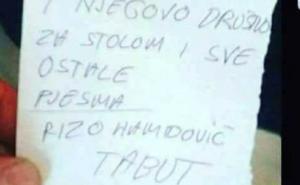 I NJEGOVO DRUŠTVO
ZA STOLOM I SVE
OSTALE
PJESMA
RIZO HAMIDOVIČ
TABUT